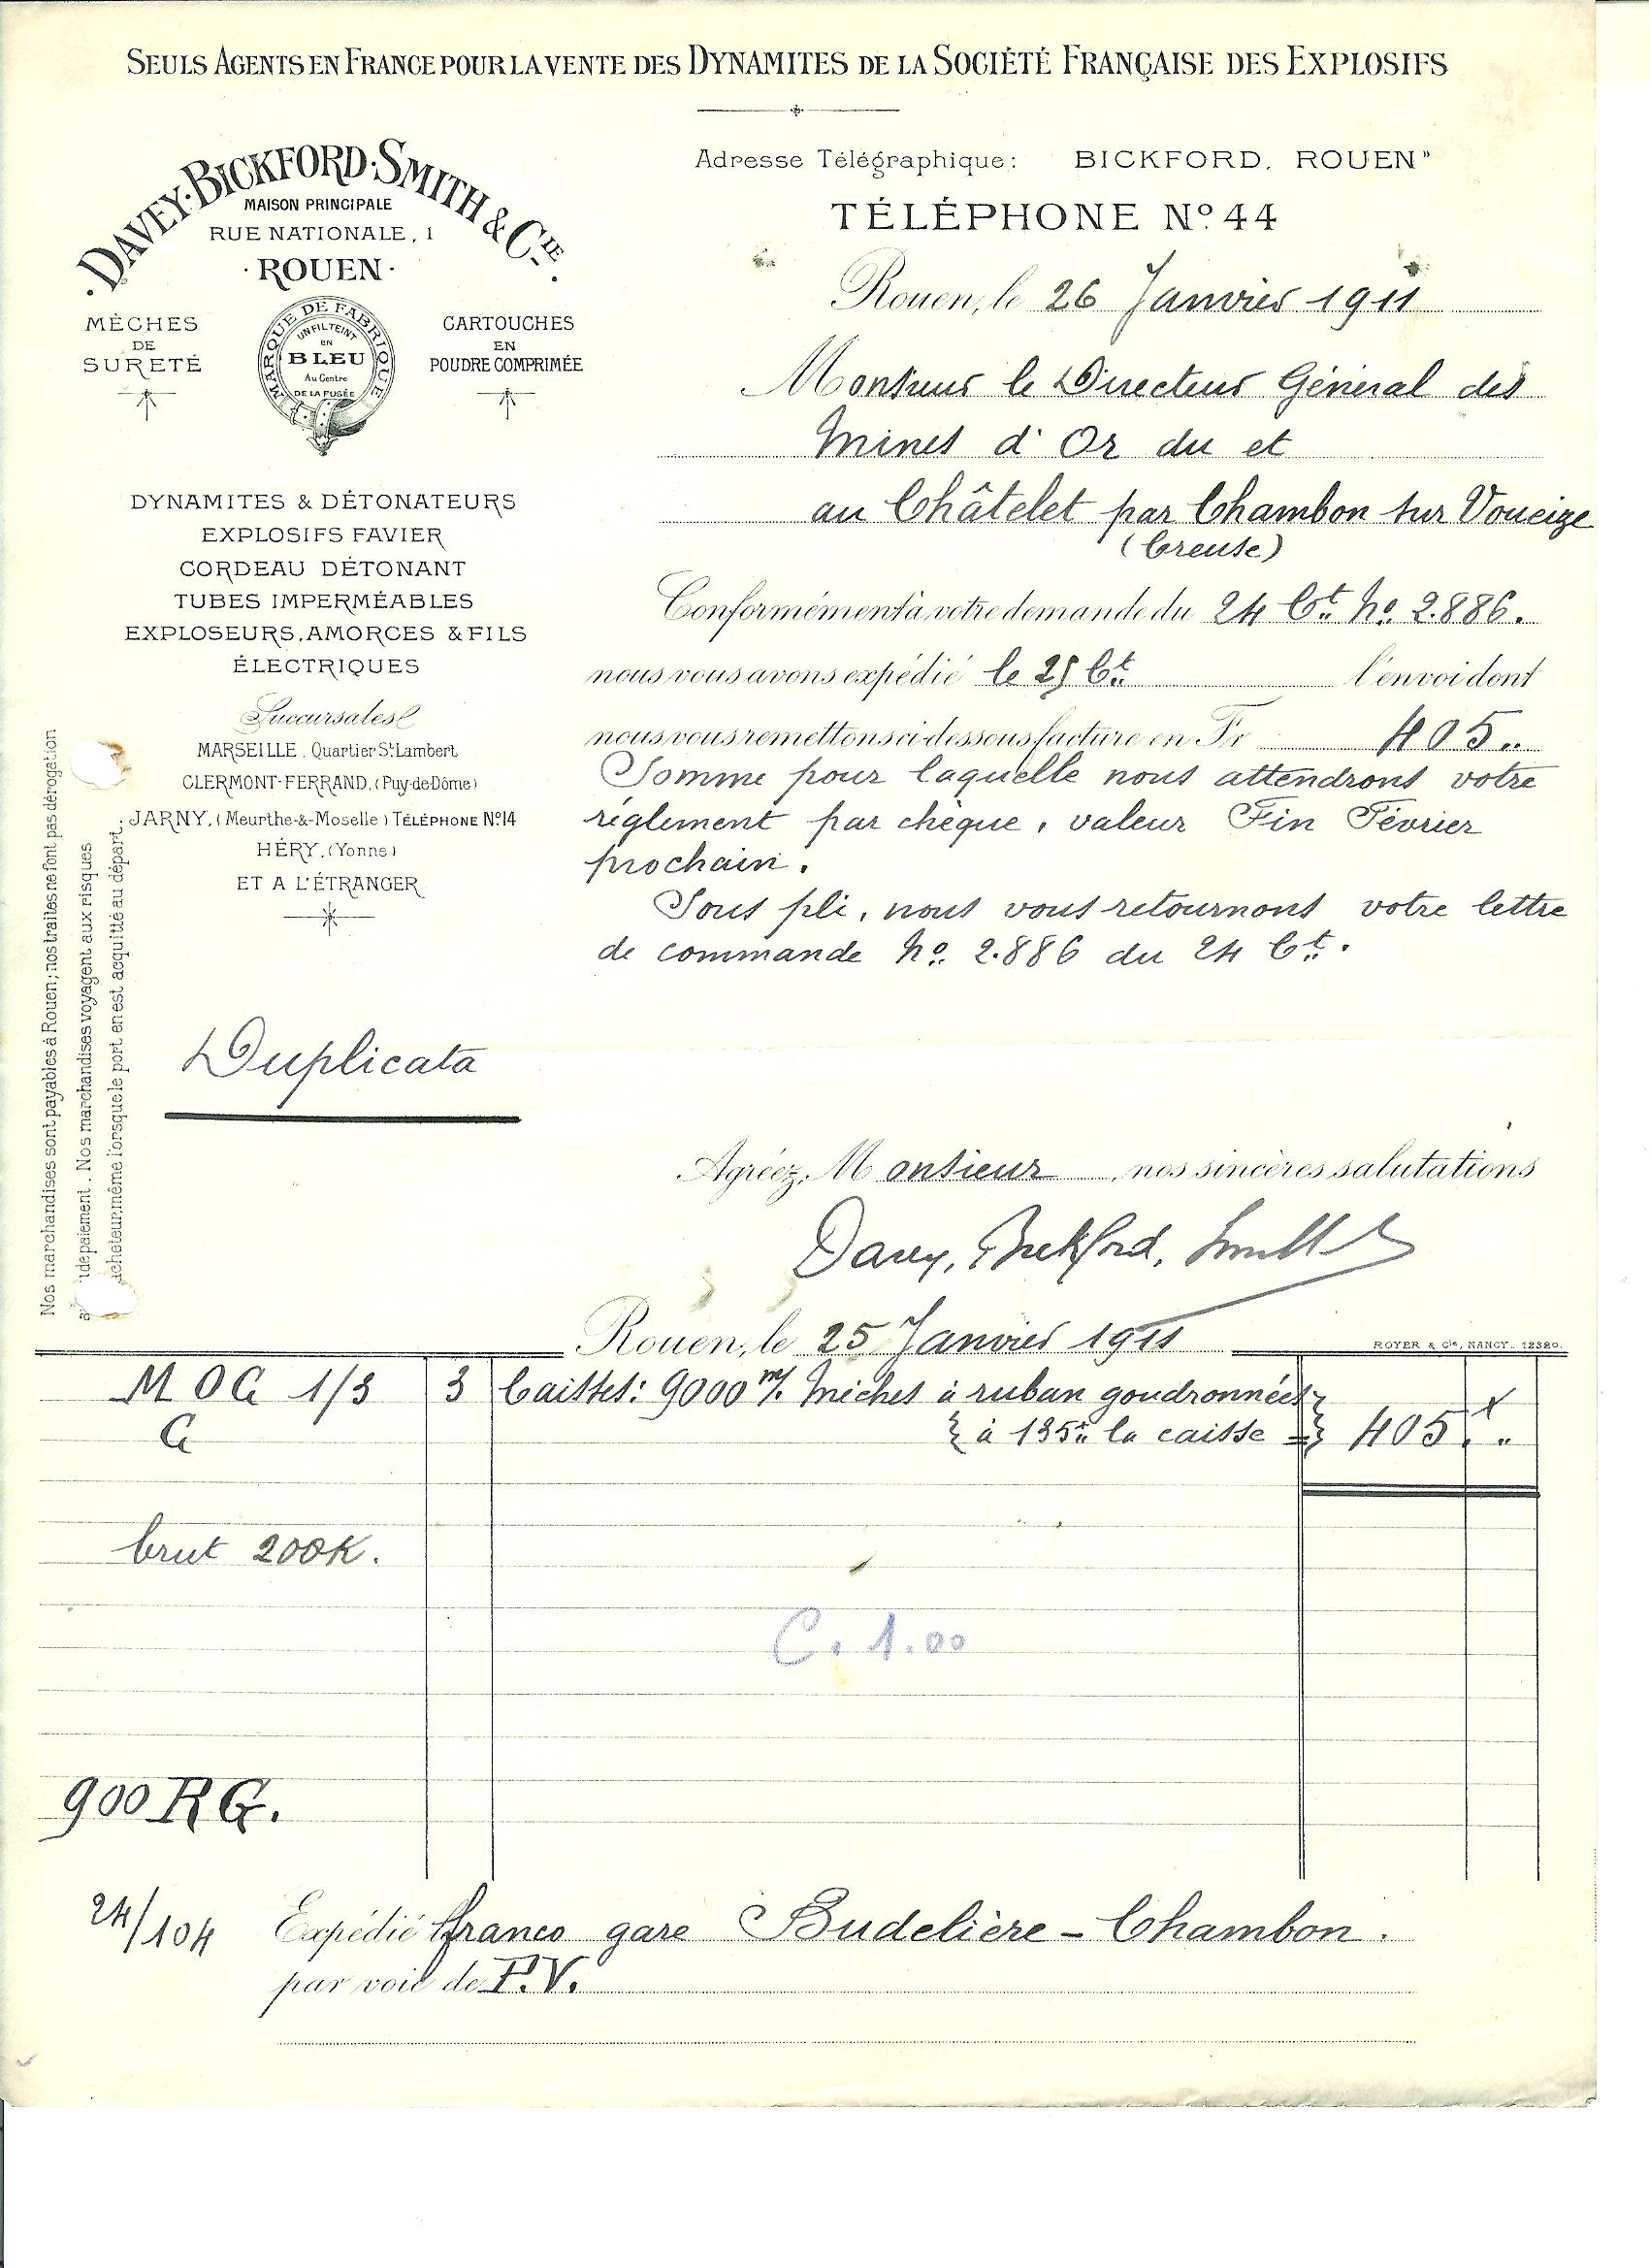 SEULS AGENTS EN FRANCE POUR LA VENTE DES DYNAMITES DE LA SOCIÉTÉ FRANÇAISE DES EXPLOSIFS
DAVEY·BICKFORD·SMITH & CIE
MAISON PRINCIPALE
RUE NATIONALE, 1
·ROUEN·
MÈCHES
DE
SURETÉ
MARQUE DE FABRIQUE
UN FIL TEINT
EN
BLEU
Au Centre
DE LA FUSÉE
CARTOUCHES
EN
POUDRE COMPRIMÉE
DYNAMITES & DÉTONATEURS
EXPLOSIFS FAVIER
CORDEAU DÉTONANT
TUBES IMPERMÉABLES
EXPLOSEURS, AMORCES & FILS
ÉLECTRIQUES
Succursales
MARSEILLE. Quartier St Lambert
CLERMONT-FERRAND, (Puy-de-Dôme)
JARNY, (Meurthe-&-Moselle) TÉLÉPHONE No 14
HÉRY, (Yonne)
ET A L'ÉTRANGER
Nos marchandises sont payables à Rouen; nos traites ne font pas dérogation
de paiement. Nos marchandises voyagent aux risques
acheteur, même lorsque le port en est acquitté au départ.
Adresse Télégraphique: BICKFORD, ROUEN"
TÉLÉPHONE No. 44
Rouen, le 26 Janvier 1911
Monsieur le Directeur Général des
Mines d'Or du et
au Châtelet par Chambon sur Voueize
(Creuse)
Conformément à votre demande du 24 Ct. No. 2.886.
nous vous avons expédié le 25 Ct. l'envoi dont
nous vous remettons ci-dessous facture en Fr 405..
Somme pour laquelle nous attendrons votre
règlement par chèque, valeur Fin Février
prochain.
Sous pli, nous vous retournons votre lettre
de commande No. 2.886 du 24 Ct.
Duplicata
Agréez, Monsieur, nos sincères salutations
Davey, Bickford, Smith
Rouen, le 25 Janvier 1911
ROYER & Cie, NANCY. 12320.
M O C 1/3 3 Caisses: 9000 m/. Mèches à ruban goudronnées
C à 135.. la caisse = 405 . ..
brut 200K.
C. 1.00
900 RG.
24/104 Expédié franco gare Budelière - Chambon.
par voie de P.V.